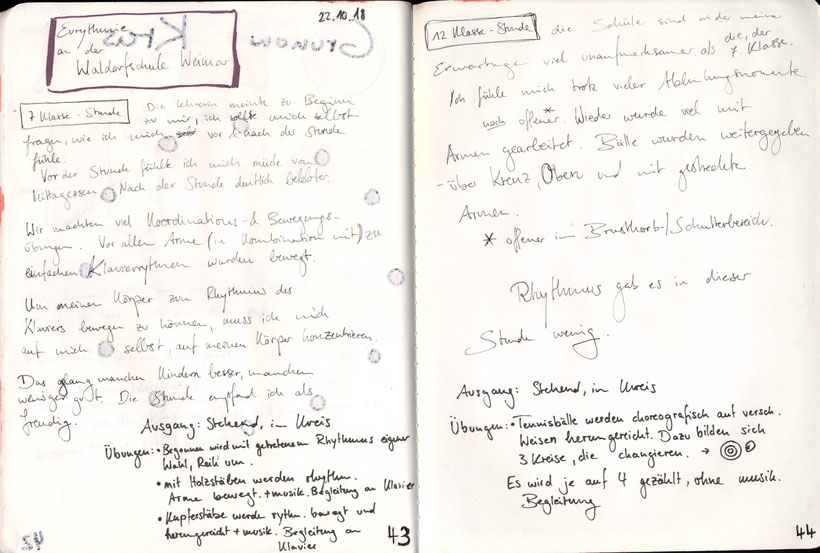 22.10.18
Eurythmie
an der
Waldorfschule Weimar
7 Klasse - Stunde
Die Lehrerin meinte zu Beginn
zu mir, ich sollte mich selbst
fragen, wie ich mich vor &-nach der Stunde
fühle.
Vor der Stunde fühlte ich mich müde vom
Mittagessen. Nach der Stunde deutlich belebter.
Wir machten viel Koordinations-& Bewegungs-
übungen. Vor allen Arme (in Kombination mit) zu
einfachen Klavierrythmen wurden bewegt.
Um meinen Körper zum Rhythmus des
Klaviers bewegen zu können, muss ich mich
auf mich selbst, auf meinen Körper konzentrieren.
Das gelang manchen Kindern besser, manchen
weniger gut. Die Stunde empfand ich als
freudig.
Ausgang: Stehend, im Kreis
Übungen: • Begonnen wird mit getretenem Rhythmus eigener
Wahl, Reih um.
• mit Holzstäben werden rhythm.
Arme bewegt. + musik. Begleitung an Klavier
• Kupferstäbe werden rythm. bewegt und
herumgereicht + musik. Begleitung an
Klavier
43
42
12 Klasse - Stunde
die Schüler sind wider meine
Erwartungen viel unaufmerksamer als die, der
7. Klasse.
Ich fühle mich trotz vieler Ablenkungsmomente
noch offener.* Wieder wurde viel mit
Armen gearbeitet. Bälle wurden weitergegeben
- über Kreuz, Oben und mit gestreckte
Armen.
* offener im Brustkorb-/Schulterbereich.
Rhythmus gab es in dieser
Stunde wenig.
Ausgang: Stehend, im Kreis
Übungen: • Tennisbälle werden choreografisch auf versch.
Weisen herumgereicht. Dazu bilden sich
3 Kreise, die changieren. →
Es wird je auf 4 gezählt, ohne musik.
Begleitung
44